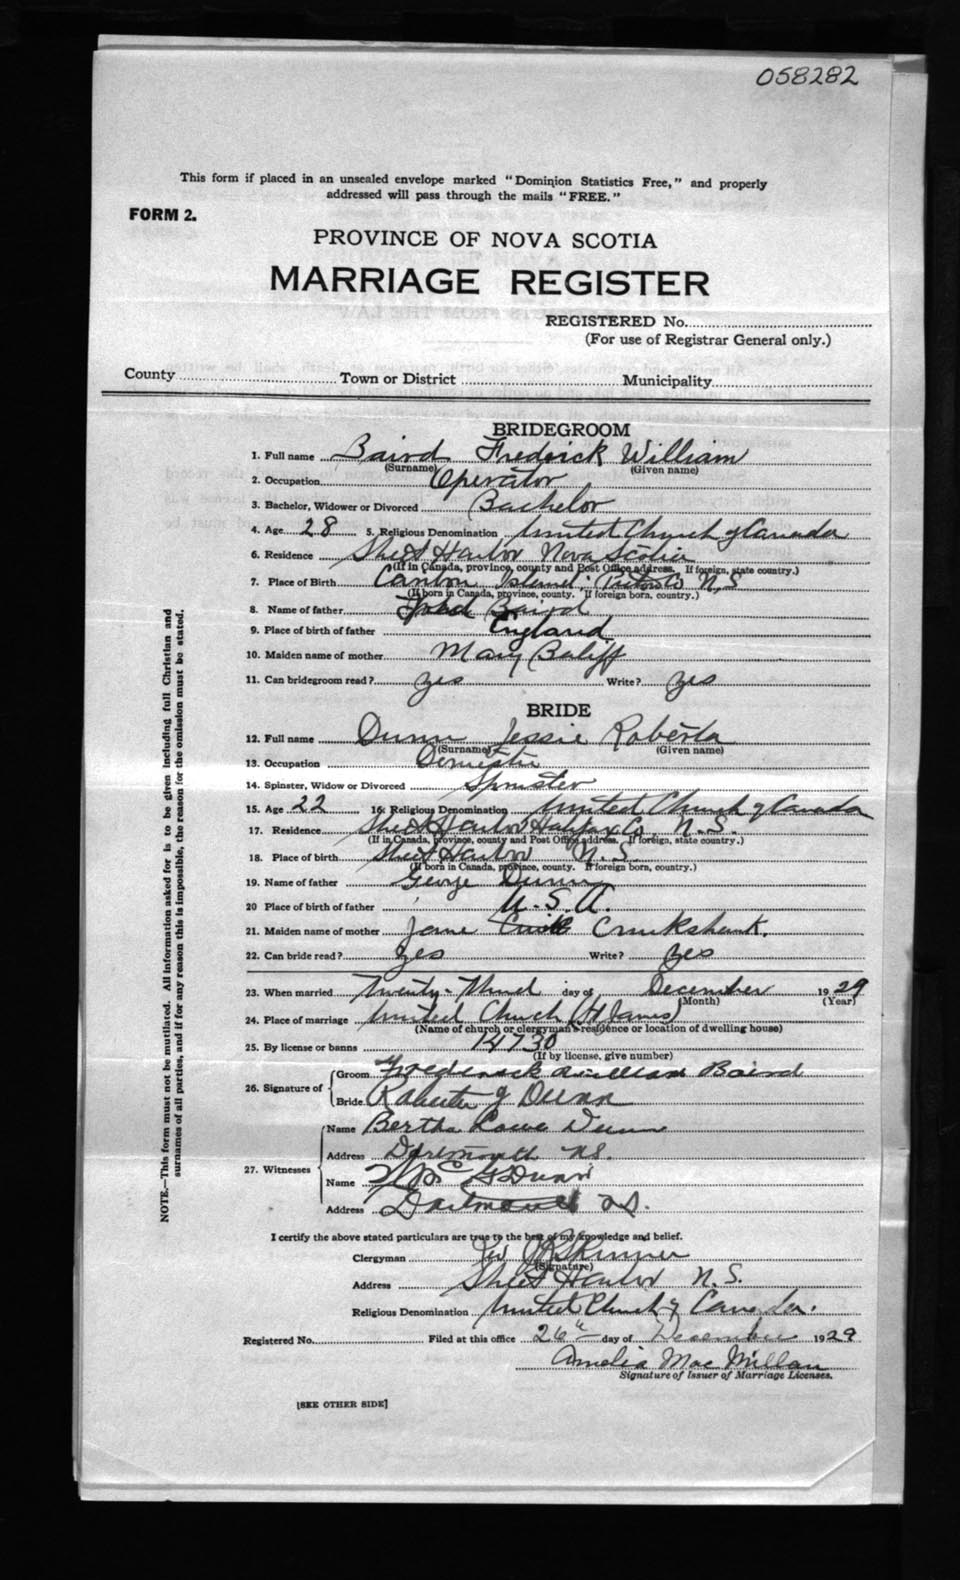 058282
This form if placed in an unsealed envelope marked "Dominion Statistics Free," and properly
addressed will pass through the mails "FREE."
FORM 2.
PROVINCE OF NOVA SCOTIA
MARRIAGE REGISTER
REGISTERED No.
(For use of Registrar General only.)
County Town or District Municipality
BRIDEGROOM
1. Full name Baird Fredrick William
(Surname) (Given name)
2. Occupation Operator
3. Bachelor, Widower or Divorced Bachelor
4. Age 28 5. Religious Denomination United Church of Canada
6. Residence Sheet Harbor Nova Scotia
(If in Canada, province, county and Post Office address. If foreign, state country.)
7. Place of Birth Island N.S
(If born in Canada, province, county. If foreign born, country.)
8. Name of father Baird
9. Place of birth of father England
10. Maiden name of mother Mary Baliff
11. Can bridegroom read? yes Write? yes
BRIDE
12. Full name Dunn Jessie Roberta
(Surname) (Given name)
13. Occupation Domestic
14. Spinster, Widow or Divorced Spinster
15. Age 22 16. Religious Denomination United Church of Canada
17. Residence Sheet Harbor Halifax Co. N.S.
(If in Canada, province, county and Post Office address. If foreign, state country.)
18. Place of birth Sheet Harbor N.S.
(If born in Canada, province, county. If foreign born, country.)
19. Name of father George Dunn
20 Place of birth of father U.S.A.
21. Maiden name of mother Jane Cruikshank.
22. Can bride read? yes Write? yes
23. When married Twenty-Third day of December 1929
(Month) (Year)
24. Place of marriage United Church (St James)
(Name of church or clergyman's residence or location of dwelling house)
25. By license or banns 14730
(If by license, give number)
26. Signature of Groom Frederick William Baird
Bride Roberta J Dunn
27. Witnesses Name Bertha Lowe Dunn
Address Dartmouth N.S.
Name Dunn
Address Dartmouth N.S.
I certify the above stated particulars are true to the best of my knowledge and belief.
Clergyman Skinner
(Signature)
Address Sheet Harbor N.S.
Religious Denomination United Church of Canada.
Registered No. Filed at this office 26th day of December 1929
Amelia MacMillan
Signature of Issuer of Marriage Licenses.
[SEE OTHER SIDE]
NOTE.—This form must not be mutilated. All information asked for is to be given including full Christian and
surnames of all parties, and if for any reason this is impossible, the reason for the omission must be stated.